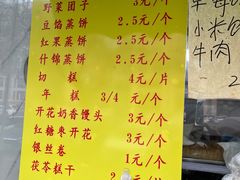 野菜团子 3元/个
豆馅蒸饼 2.5元/个
红果蒸饼 2.5元/个
什锦蒸饼 2.5元/个
切糕 4元/片
年糕 3/4元/个
开花奶香馒头 3元/个
红糖枣开花 3元/个
银丝卷 1元/个
茯苓糕干 2元/个
小米饭
牛肉